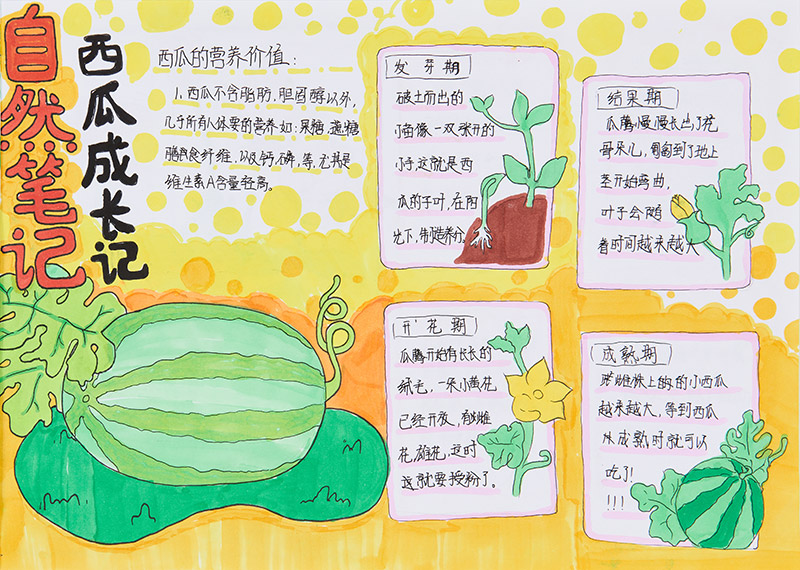 自然笔记
西瓜成长记
西瓜的营养价值:
1.西瓜不含脂肪、胆固醇以外,
几乎所有人体要的营养如:果糖、蔗糖
膳食纤维,以及钙,磷,等,尤其是
维生素A含量较高。
发芽期
破土而出的
小苗像一双张开的
小手,这就是西
瓜的子叶,在阳
光下,制造养分。
结果期
瓜藤慢慢长出了花
骨朵儿,匍匐到了地上
茎开始弯曲,
叶子会随
着时间越来越大
开花期
瓜藤开始有长长的
绒毛,一朵小黄花
已经开放,有雌
花,雄花,这时
这就要授粉了。
成熟期
雌株上的的小西瓜
越来越大,等到西瓜
成熟时就可以
吃了!
!!!